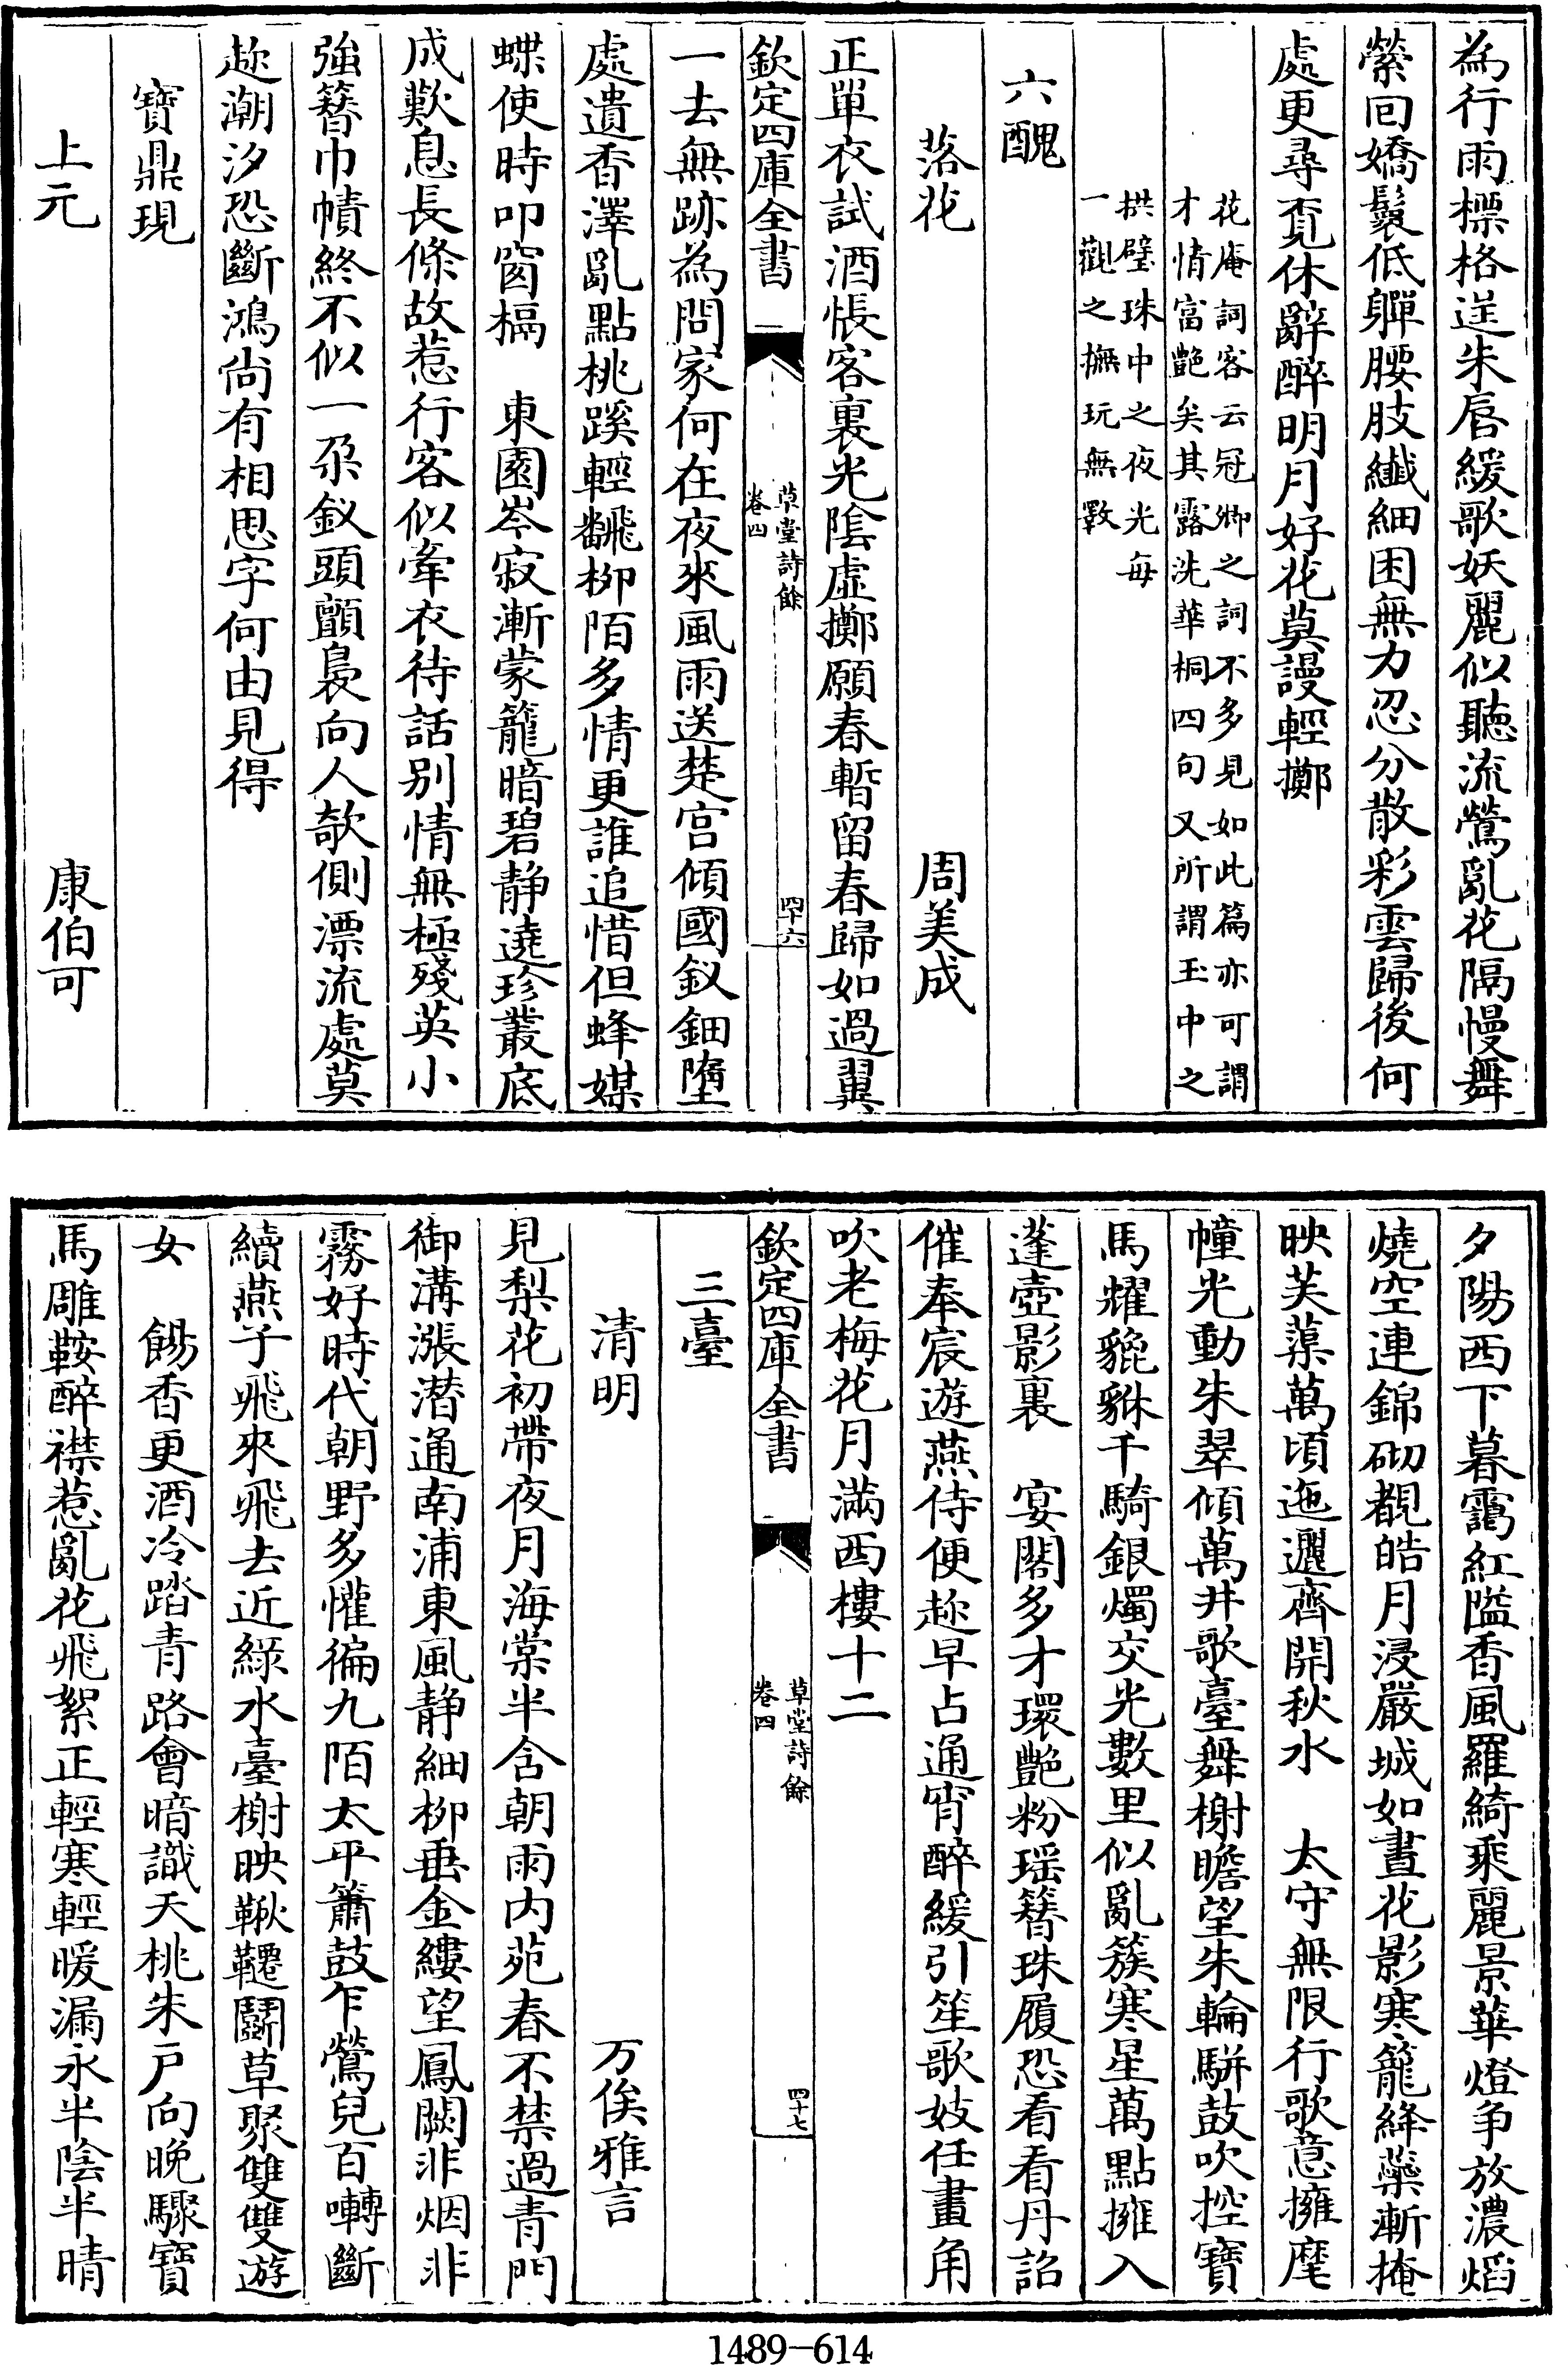 為行雨標格送朱唇緩歌妖麗似聽流鶯亂花隔慢舞
縈回嬌鬟低軃腰肢纖細困無力忍分散彩雲歸後何
處更尋覔休辭醉明月好花莫謾輕擲
花庵詞客云冠卿之詞不多見如此篇亦可謂
才情富艶矣其露洗華桐四句又所謂玉中之
拱璧珠中之夜光每
一觀之撫玩無斁
六醜
落花　周美成
正單衣試酒悵客裏光陰虛擲願春暫留春歸如過翼
欽定四庫全書
草堂詩餘
卷四
四十六
一去無跡為問家何在夜來風雨送楚宫傾國釵鈿墮
處遺香澤亂點桃蹊輕飜柳陌多情更誰追惜但蜂媒
蝶使時叩窗槅　東園岑寂漸蒙籠暗碧静遶珍叢底
成歎息長條故惹行客似牽衣待話别情無極殘英小
強簪巾幘終不似一朶釵頭顫裊向人欹側漂流處莫
趂潮汐恐斷鴻尚有相思字何由見得
寶鼎現
上元　康伯可
夕陽西下暮靄紅隘香風羅綺乘麗景華燈争放濃熖
燒空連錦砌覩皓月浸嚴城如晝花影寒籠絳蘂漸掩
映芙蕖萬頃迤邐齊開秋水　太守無限行歌意擁麾
幢光動朱翠傾萬井歌臺舞榭瞻望朱輪駢鼓吹控寶
馬耀貔貅千騎銀燭交光數里似亂簇寒星萬點擁入
蓬壺影裏　宴閣多才環艶粉瑶簪珠履恐看看丹詔
催奉宸遊燕侍便趂早占通宵醉緩引笙歌妓任畫角
吹老梅花月滿西樓十二
欽定四庫全書
草堂詩餘
卷四
四十七
三臺
清明　万俟雅言
見梨花初帶夜月海棠半含朝雨内苑春不禁過青門
御溝漲潜通南浦東風静細柳垂金縷望鳳闕非烟非
霧好時代朝野多懽徧九陌太平簫鼓乍鶯兒百囀斷
續燕子飛來飛去近緑水臺榭映鞦韆鬬草聚雙雙遊
女　餳香更酒冷踏青路會暗識夭桃朱戸向晚驟寶
馬雕鞍醉襟惹亂花飛絮正輕寒輕暖漏永半陰半晴
1489-614